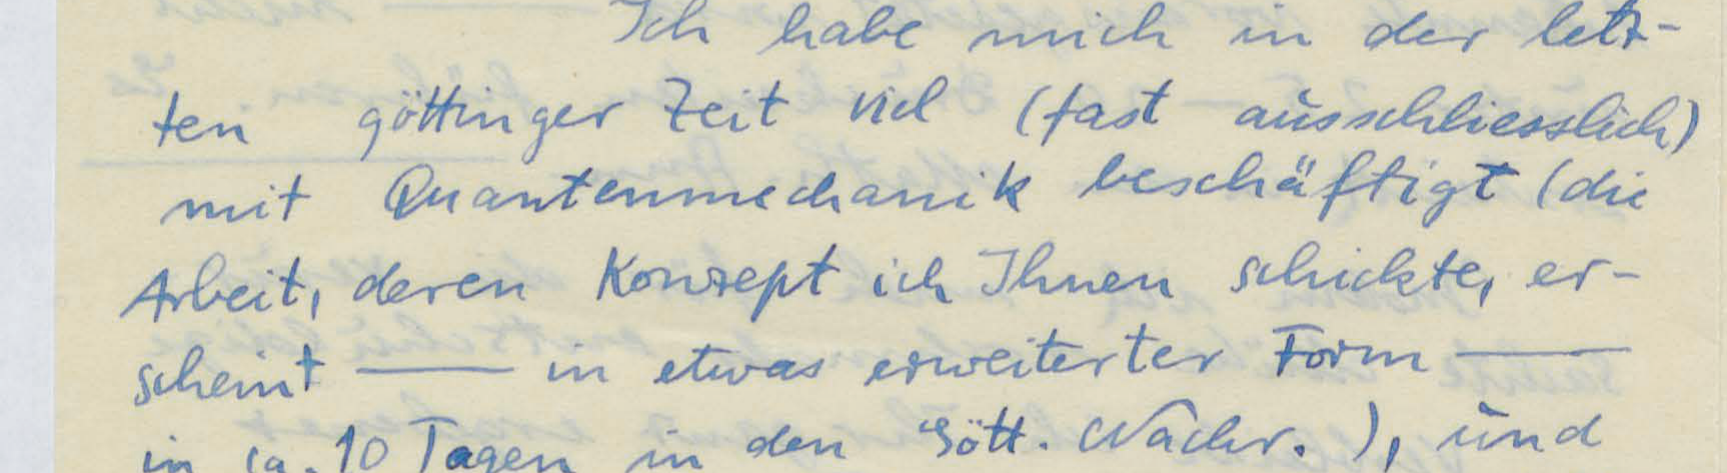 Ich habe mich in der letz-
ten göttinger Zeit viel (fast ausschliesslich)
mit Quantenmechanik beschäftigt (die
Arbeit, deren Konzept ich Ihnen schickte, er-
scheint — in etwas erweiterter Form —
in ca. 10 Tagen in den Gött. Nachr.), und